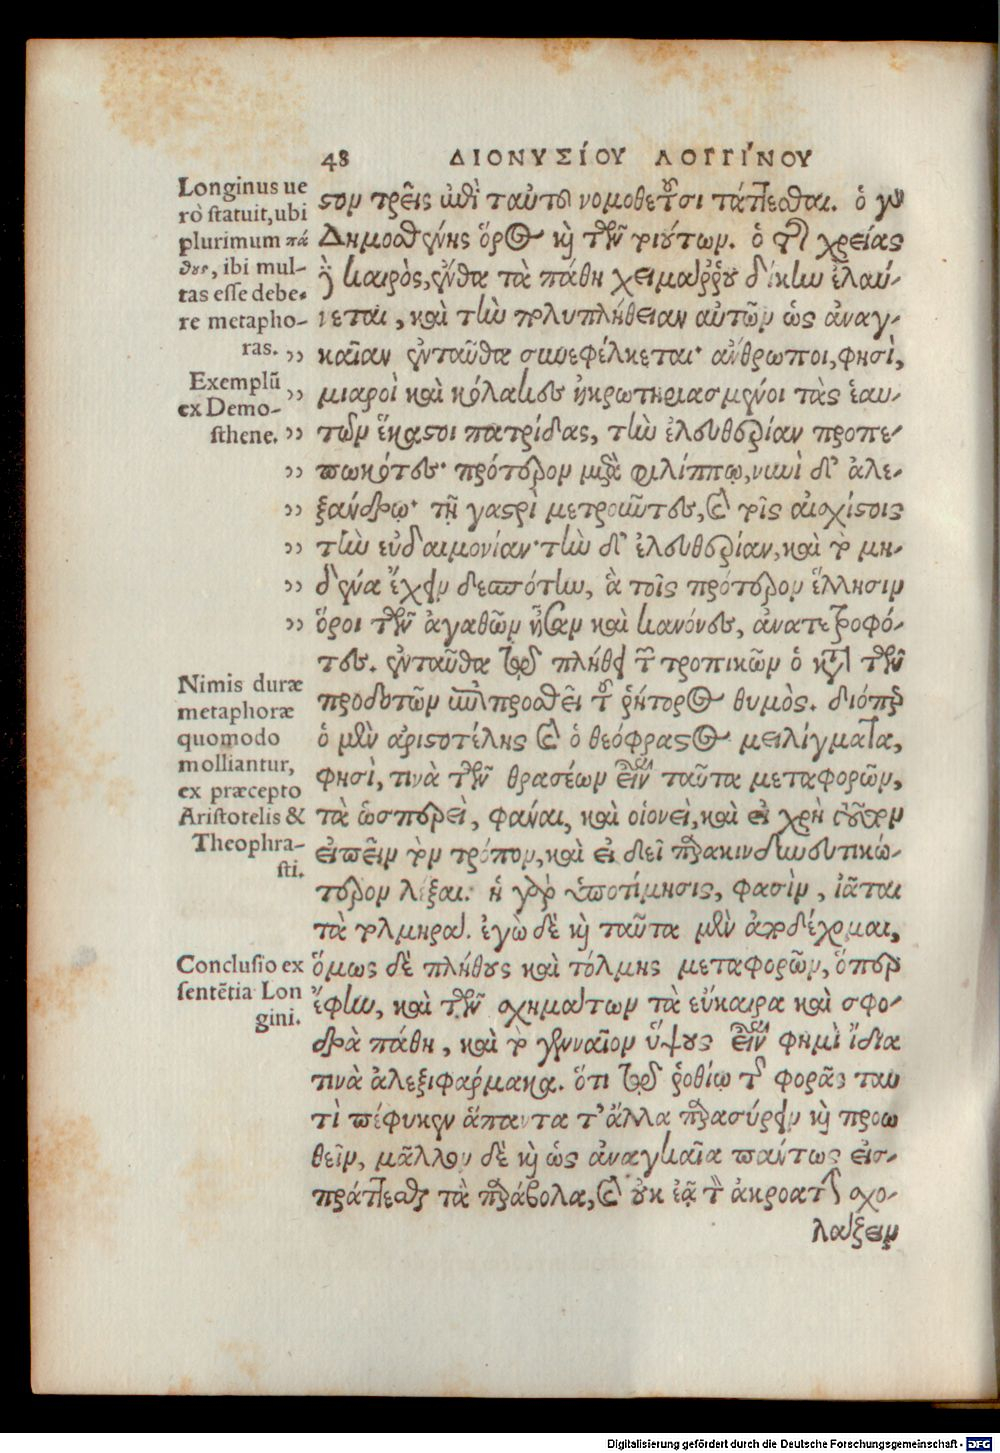 48 ΔΙΟΝΥΣΙΟΥ ΛΟΓΓΙΝΟΥ
Longinus ue
rò statuit, ubi
plurimum πά
θους, ibi mul-
tas esse debe-
re metapho-
ras.
Exemplũ
ex Demo-
sthene.
Nimis duræ
metaphoræ
quomodo
molliantur,
ex præcepto
Aristotelis &
Theophra-
sti.
Conclusio ex
sentẽtia Lon
gini.
στον τρεῖς ἐπὶ ταὐτοῦ νομοθετοῦσι τάττεσθαι. ὁ γὰρ
Δημοσθένης ὅρος καὶ τῶν τοιούτων. ὁ τῆς χρείας
ἢ καιρὸς, ἔνθα τὰ πάθη χειμάῤῥου δίκην ἐλαύ-
νεται, καὶ τὴν πολυπλήθειαν αὐτῶν ὡς ἀναγ-
,, καῖαν ἐνταῦθα συνεφέλκεται· ἄνθρωποι, φησὶ,
,, μιαροὶ καὶ κόλακες ἠκρωτηριασμένοι τὰς ἑαυ-
,, τῶν ἕκαστοι πατρίδας, τὴν ἐλευθερίαν προπε-
,, πωκότες· πρότερον μὲν φιλίππῳ, νυνὶ δὲ ἀλε-
,, ξάνδρῳ· τῇ γαστρὶ μετροῦντες, καὶ τοῖς αἰσχίστοις
,, τὴν εὐδαιμονίαν· τὴν δὲ ἐλευθερίαν, καὶ τὸ μη-
,, δένα ἔχειν δεσπότην, ἃ τοῖς πρότερον ἕλλησιν
,, ὅροι τῶν ἀγαθῶν ἦσαν καὶ κανόνες, ἀνατετροφό-
τες. ἐνταῦθα τῷ πλήθει τῶν τροπικῶν ὁ κατὰ τῶν
προδοτῶν ἐπιπροσθεῖ τοῦ ῥήτορος θυμὸς. διόπερ
ὁ μὲν ἀριστοτέλης καὶ ὁ θεόφραστος μειλίγματα,
φησὶ, τινὰ τῶν θρασέων εἶναι ταῦτα μεταφορῶν,
τὰ ὡσπερεὶ, φάναι, καὶ οἱονεὶ, καὶ εἰ χρὴ τοῦτον
εἰπεῖν τὸν τρόπον, καὶ εἰ δεῖ παρακινδυνευτικώ-
τερον λέξαι. ἡ γὰρ ὑποτίμησις, φασὶν, ἰᾶται
τὰ τολμηρά. ἐγὼ δὲ καὶ ταῦτα μὲν ἀποδέχομαι,
ὅμως δὲ πλήθους καὶ τόλμης μεταφορῶν, ὅπερ
ἔφην, καὶ τῶν σχημάτων τὰ εὔκαιρα καὶ σφο-
δρὰ πάθη, καὶ τὸ γενναῖον ὕψους εἶναι φημὶ ἴδια
τινὰ ἀλεξιφάρμακα. ὅτι τῷ ῥοθίῳ τῆς φορᾶς ταυ
τὶ πέφυκεν ἅπαντα τ' ἄλλα παρασύρειν καὶ προω
θεῖν, μᾶλλον δὲ καὶ ὡς ἀναγκαῖα πάντως εἰσ-
πράττεσθαι τὰ παράβολα, καὶ οὐκ ἐᾷ τὸν ἀκροατὴν σχο-
λάζειν
Digitalisierung gefördert durch die Deutsche Forschungsgemeinschaft - DFG